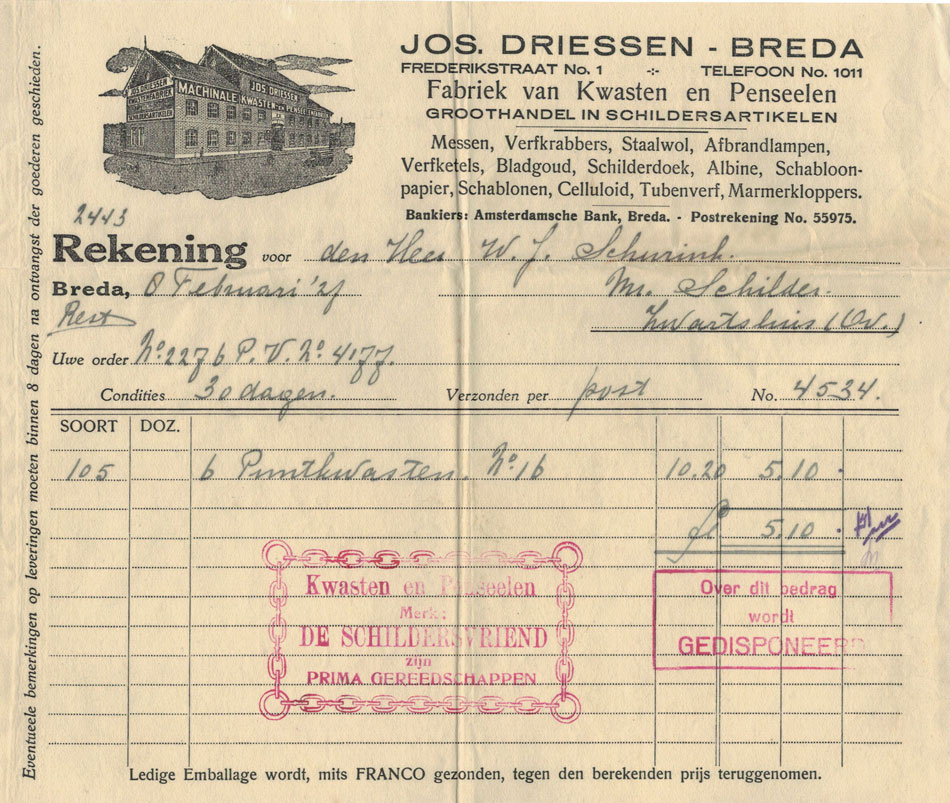 JOS. DRIESSEN - BREDA
FREDERIKSTRAAT No. 1 -:- TELEFOON No. 1011
Fabriek van Kwasten en Penseelen
GROOTHANDEL IN SCHILDERSARTIKELEN
Messen, Verfkrabbers, Staalwol, Afbrandlampen,
Verfketels, Bladgoud, Schilderdoek, Albine, Schabloon-
papier, Schablonen, Celluloid, Tubenverf, Marmerkloppers.
Bankiers: Amsterdamsche Bank, Breda. - Postrekening No. 55975.
JOS. DRIESSEN
KWASTENFABRIEK
SCHILDERSARTIKELEN
JOS. DRIESSEN
MACHINALE KWASTEN- EN PENSEELFABRIEK
2443
Rekening voor den Heer W. J. Schurink.
Breda, 8 Februari '27 Mr. Schilder.
Rest Zwartsluis (Ov.)
Uwe order No. 2276 P. V. No. 4177.
Condities 30 dagen. Verzonden per post No. 4534.
SOORT DOZ.
105 6 Puntkwasten. No. 16 10.20 5.10
fl 5.10
Kwasten en Penseelen
Merk:
DE SCHILDERSVRIEND
zijn
PRIMA GEREEDSCHAPPEN
Over dit bedrag
wordt
GEDISPONEERD
Ledige Emballage wordt, mits FRANCO gezonden, tegen den berekenden prijs teruggenomen.
Eventueele bemerkingen op leveringen moeten binnen 8 dagen na ontvangst der goederen geschieden.